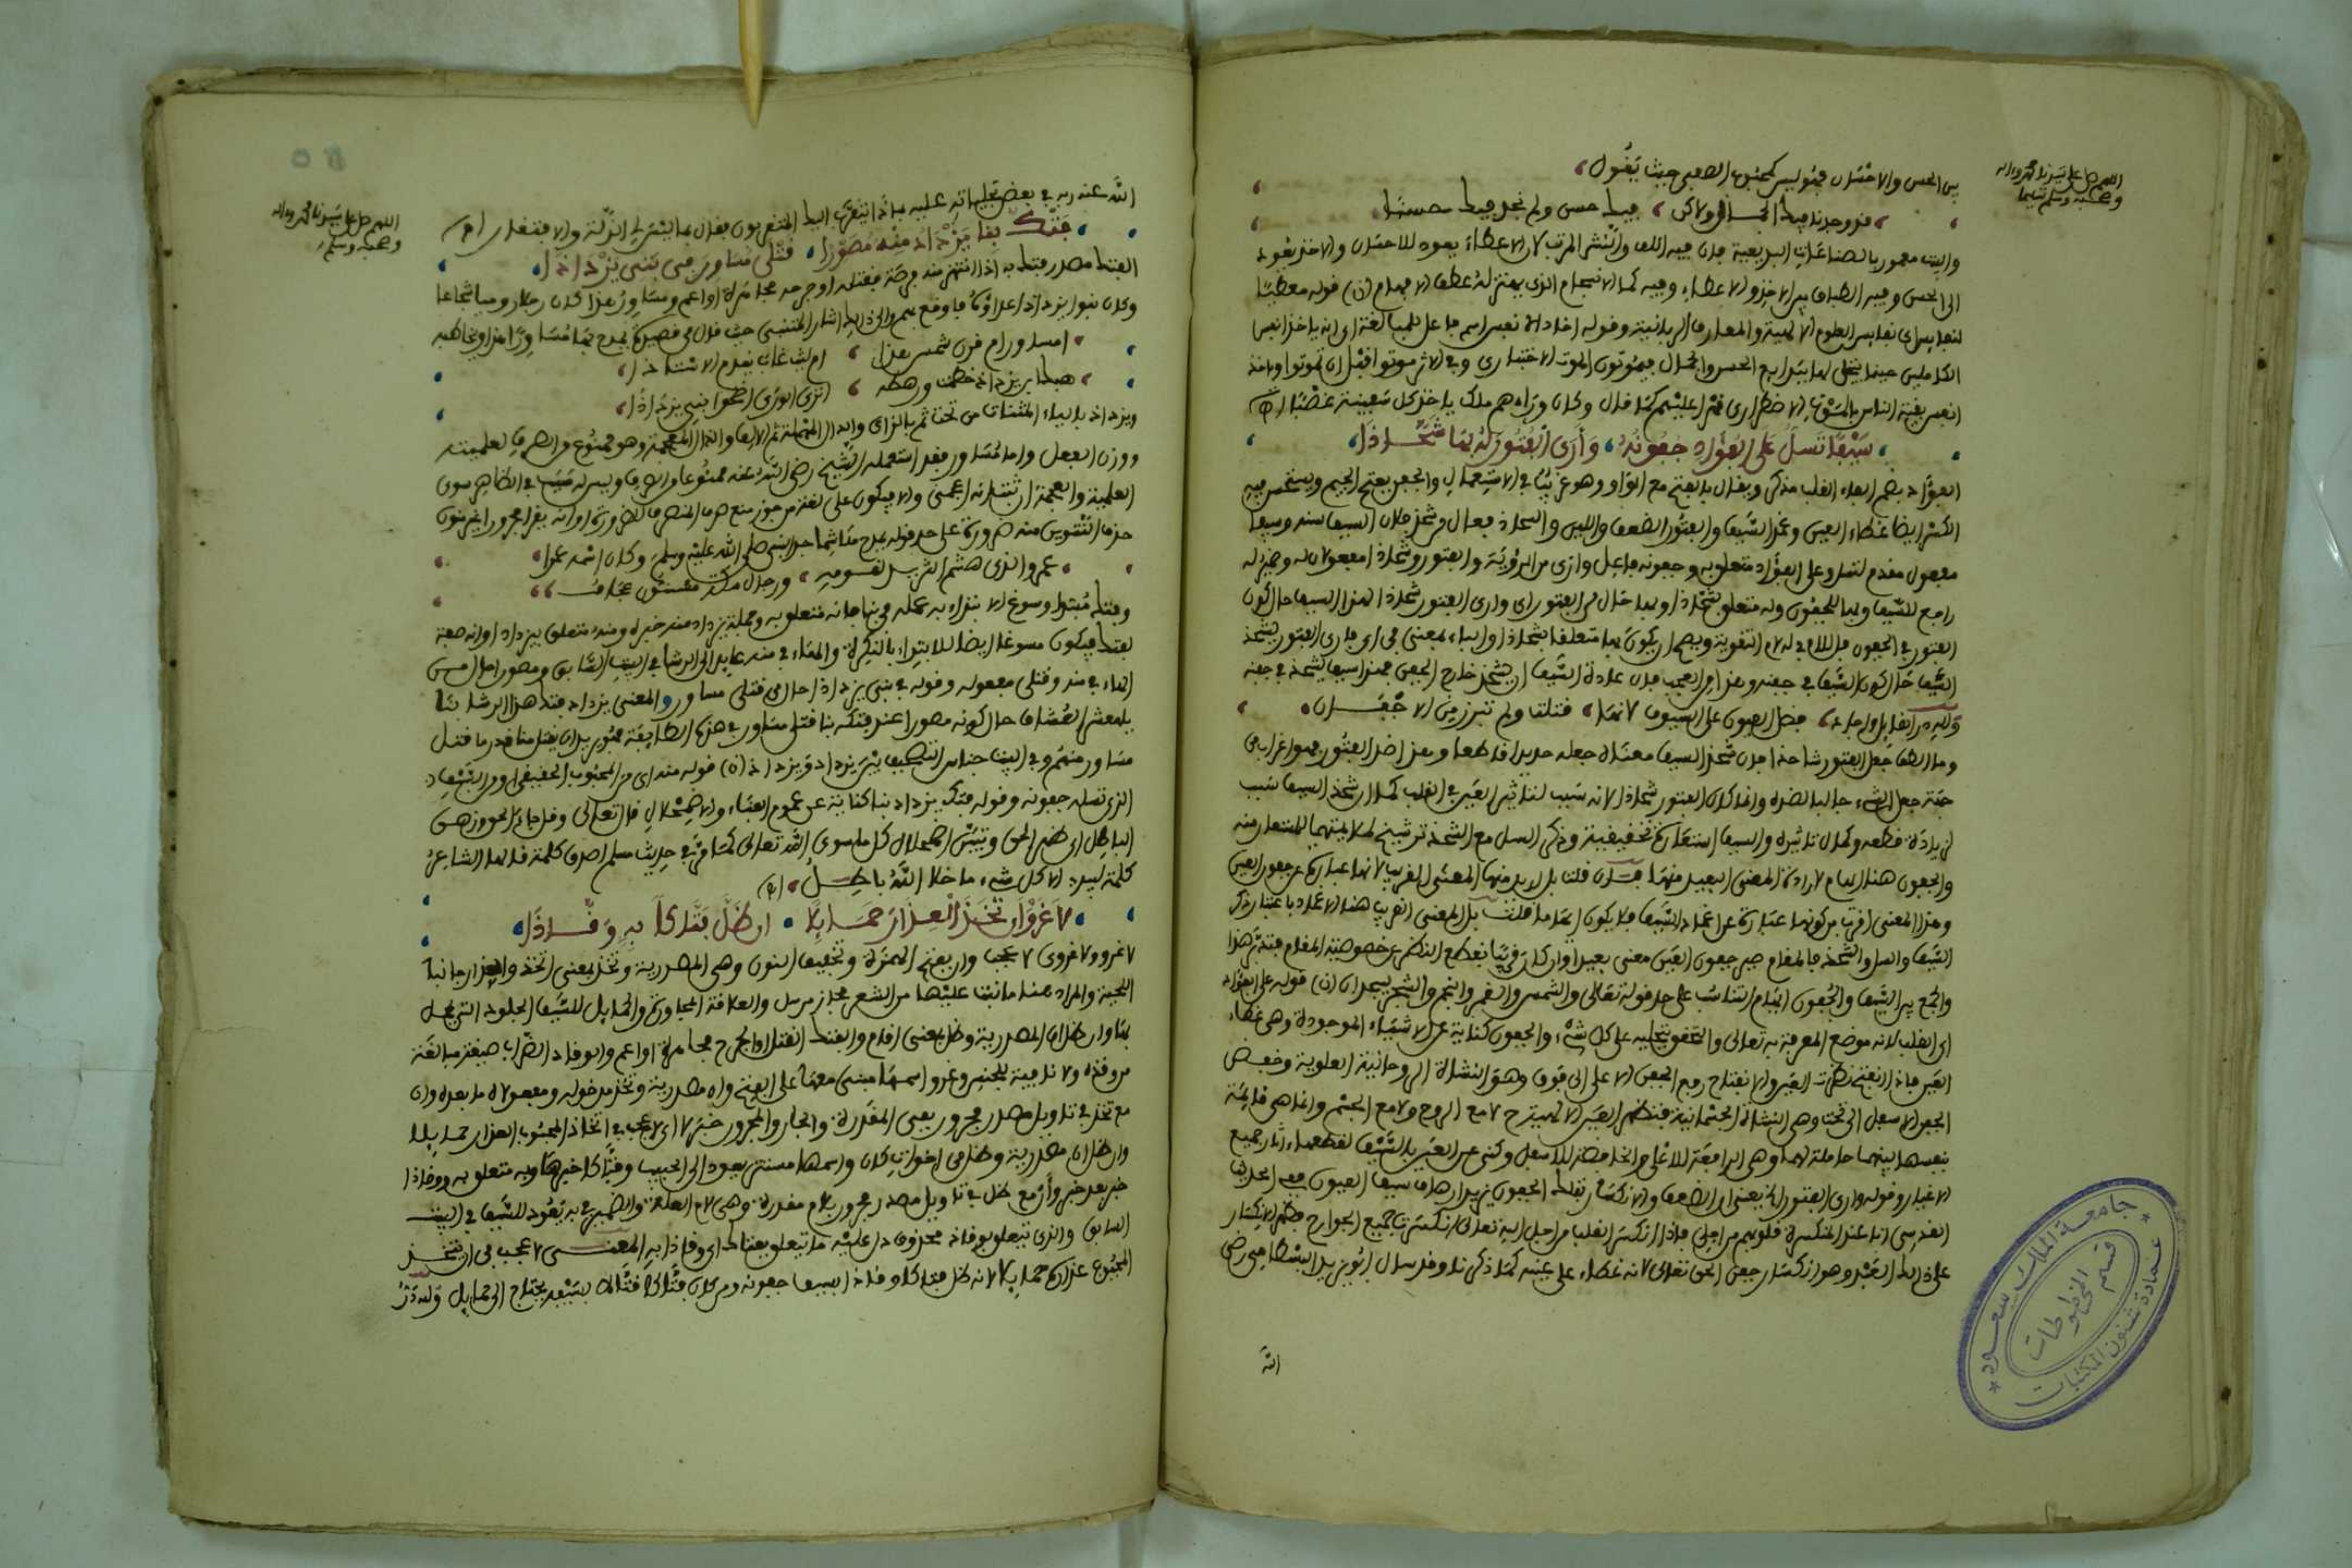 اللهم صل على سيدنا محمد وءاله
وصحبه وسلم تسليما
بين الحسن والاحسان فمحبوبه ليس كمحبوب الصفي حيث يقول
فد وجدنا فيك الجمال ولاكن فيك حسن ولم نجد فيك حسنا
والبيت معمور بالصناعات البديعية فإن فيه اللف والنشر المرتب لأن الاعطاء يعود للاحسان والاخذ يعود
الى الحسن وفيه الطباق بين الاخذ والاعطاء وفيه كما لا الانسجام الذي يهتز له عطف الافهام (ن) قوله معطيا
لنفايس اي نفايس العلوم الاهية والمعارف الربانية وقوله اخاذا لانفس اسم فاعل للمبالغة اي انه ياخذ انفس
الكاملين حينما يتجلى لها بسر ابع الحسن والجمال فيموتون الموت الاختياري وفي الاثر موتوا قبل ان تموتوا وياخذ
انفس بقية الناس بالموت الاضطراري قهرا عليهم كما قال وكان وراءهم ملك ياخذ كل سفينة غصبا اه
سيفا تسل على الفؤاد جفونه وأرى الفتور له بها شحاذا
الفؤاد بضم الفاء القلب مذكر ويقال بالفتح مع الواو وهو غريب في الاستعمال والجفن بفتح الجيم ويستحسن فيه
الكسر ايضا غطاء العين وغمد السيف والفتور الضعف واللين والشحاذ فعال من شحذ فلان السيف سنه وسيفا
مفعول مقدم لتسل وعلى الفؤاد متعلق به وجفونه فاعل وارى من الرؤية والفتور وشحاذا مفعولان له وضمير له
راجع للسيف وبها للجفون وله متعلق بشحاذا وبها حال من الفتور اي وارى الفتور شحاذا لهذا السيف حال كون
الفتور في الجفون فاللام في له لام التقوية ويصح ان يكون بها متعلقا بشحاذا والباء بمعنى في اي ارى الفتور يشحذ
السيف حال كون السيف في جفنه وهذا من العجب فان عادة السيف ان يشحذ خارج الجفن فهذا سيف يشحذ في جفنه
ولله در القايل واجاد فضل العيون على السيوف لانها قتلت ولم تبرز من الاجفان
وما الطف جعل الفتور شاحذا فان شحذ السيف معناه جعله حديدا قاطعا وهذا ضد الفتور فهو اغراب من
جهة جعل الشيء جالبا لضده وانما كان الفتور شحاذا لانه سبب لتاثير العين في القلب كما ان شحذ السيف سبب
لزيادة قطعه وكمال تاثيره والسيف استعارة تحقيقية وذكر السل مع الشحذ ترشيح لملايمتهما للمستعار منه
والجفون هنا ايهام لارادة المعنى البعيد منها فان قلت بل اريد منها المعنى القريب لانها عبارة عن جفون العين
وهذا المعنى اقرب من كونها عبارة عن اغماد السيف فلا يكون ايهاما قلت بل المعنى القريب هنا الاغماد باعتبار ذكر
السيف والسل والشحذ فالمقام صير جفون العين معنى بعيدا وان كان قريبا بقطع النظر عن خصوصية المقام فتدبر هذا
والجمع بين السيف والجفون ايهام التناسب على حد قوله تعالى والشمس والقمر والنجم والشجر يسجدان (ن) قوله على الفؤاد
اي القلب لانه موضع المعرفة به تعالى والتحقق بتجليه على كل شيء والجفون كناية عن الاشياء الموجودة وهي غطاء
العين فاذا انفتح ظهرت العين والانفتاح رفع الجفن الاعلى الى فوق وهو النشاة الروحانية العلوية وخفض
الجفن الاسفل الى تحت وهي النشاة الجثمانية فتظهر العين الالهية لا مع الروح ولا مع الجسم وانما هي قايمة
بنفسها بينهما حاملة لهما وهي الرافعة للاعلى والخافضة للاسفل وكنى عن العين بالسيف لقطعها اثار جميع
الاغيار وقوله وارى الفتور الخ يعني ان الضعف والانكسار بتلك الجفون يزيد ارهاف سيف العيون ففي الحديث
القدسي انا عند المنكسرة قلوبهم من اجلي فاذا انكسر القلب من اجل اليه تعالى انكسرت جميع الجوارح فيظهر الانكسار
على ذلك العبد وهو انكسار جفن الحق تعالى لانه غطاء على عينه كما ذكرنا وقد سال ابو يزيد البسطامي رضي
الله
جامعة الملك سعود
قسم المخطوطات
عمادة شئون المكتبات
اللهم صل على سيدنا محمد وءاله
وصحبه وسلم
الله عنه ربه في بعض تجلياته عليه بماذا يتقرب اليك المتقربون فقال بما ليس لي الذلة والافتقار (اه)
فتك بنا يزداد منه مصورا قتلى مساور في بني يزداذا
الفتك مصدر فتك به اذا انتهز منه فرصة فقتله او جرحه مجاهرة او اعم ومساور هذا كان رجلا روميا شجاعا
وكان بنو يزداذ اعداؤه فاوقع بهم والى ذلك اشار المتنبي حيث قال في قصيدة يمدح بها مساورا هذا ويخاطبه
امساور ام قرن شمس هذا ام ليث غاب يقدم الاستاذا
هبك ابن يزداذ حطمت ورهطه اترى الورى اضحوا بني يزداذا
ويزداذ بالياء المثناة من تحت ثم بالزاي والدال المهملة ثم الالف والذال المعجمة وهو ممنوع من الصرف لعلميته
ووزن الفعل واما مساور فقد استعمله الشيخ رضي الله عنه ممنوعا من الصرف وليس له سبب في الظاهر سوى
العلمية والعجمة ان ثبت انه اعجمي والا فيكون على لغة من جوز منع صرف المنصرف للضرورة او انه يقرا مجرورا بغير تنوين
حذف التنوين منه ضرورة على حد قوله يمدح هاشما جد النبي صلى الله عليه وسلم وكان اسمه عمرا
عمرو الذي هشم الثريد لقومه ورجال مكة مسنتون عجاف
وفتك مبتدا وسوغ الابتداء به عمله في بنا فانه متعلق به وجملة يزداد منه خبره ومنه متعلق بيزداد او انه صفة
لفتك فيكون مسوغا ايضا للابتداء بالنكرة والهاء في منه عايد الى الرشا في البيت السابق ومصورا حال من
الهاء في منه وقتلى مفعوله وقوله في بني يزداذا حال من قتلى مساور والمعنى يزداد فتك هذا الرشا بنا
يا معشر العشاق حال كونه مصورا عند فتكه بنا قتلى مساور في هذه الطايفة فهو يريد ان يقتل منا قدر ما قتل
مساور منهم وفي البيت جناس التصحيف بين يزداد ويزداذ (ن) قوله منه اي من المحبوب الحقيقي او من السيف
الذي تسله جفونه وقوله فتك يزداد بنا كناية عن عموم الفناء والاضمحلال قال تعالى وقل جاء الحق وزهق
الباطل اي ظهر الحق وتبين اضمحلال كل ما سوى الله تعالى كما مر في حديث مسلم اصدق كلمة قالها الشاعر
كلمة لبيد الا كل شيء ما خلا الله باطل (اه)
لا غرو ان تخذ العذار حمايلا ان ظل فتاكا به وقاذا
لا غرو ولا غروى لا عجب وان بفتح الهمزة وتخفيف النون وهي المصدرية وتخذ بمعنى اتخذ والعذار جانبا
اللحية والمراد هنا ما نبت عليها من الشعر مجاز مرسل والعلاقة المجاورة والحمايل للسيف الجلود التي يحمل
بها وان ظل ان المصدرية وظل بمعنى اقام والفتك القتل او الجرح مجاهرة او اعم والوقاذ الضراب صيغة مبالغة
من وقذه ولا نافية للجنس وغرو اسمها مبني معها على الفتح وان مصدرية وتخذ مدخولها ومفعولاه ما بعده وان
مع تخذ في تاويل مصدر مجرور بفي المقدرة والجار والمجرور خبر لا اي لا عجب في اتخاذ المحبوب العذار حمايلا
وان ظل ان مصدرية وظل من اخوات كان واسمها مستتر يعود الى الحبيب وفتاكا خبرها وبه متعلق به ووقاذا
خبر بعد خبر وأن مع ظل في تاويل مصدر مجرور بلام مقدرة وهي لام العلة والضمير في به يعود للسيف في البيت
السابق والذي يتعلق بوقاذ محذوف دل عليه ما تعلق بفتاك اي وقاذا به المعنى لا عجب في ان يتخذ
المحبوب عذاره حمايلا لانه ظل فتاكا وقاذا بسيف جفونه ومن كان فتاكا قتالا بسيفه يحتاج الى حمايل ولله در